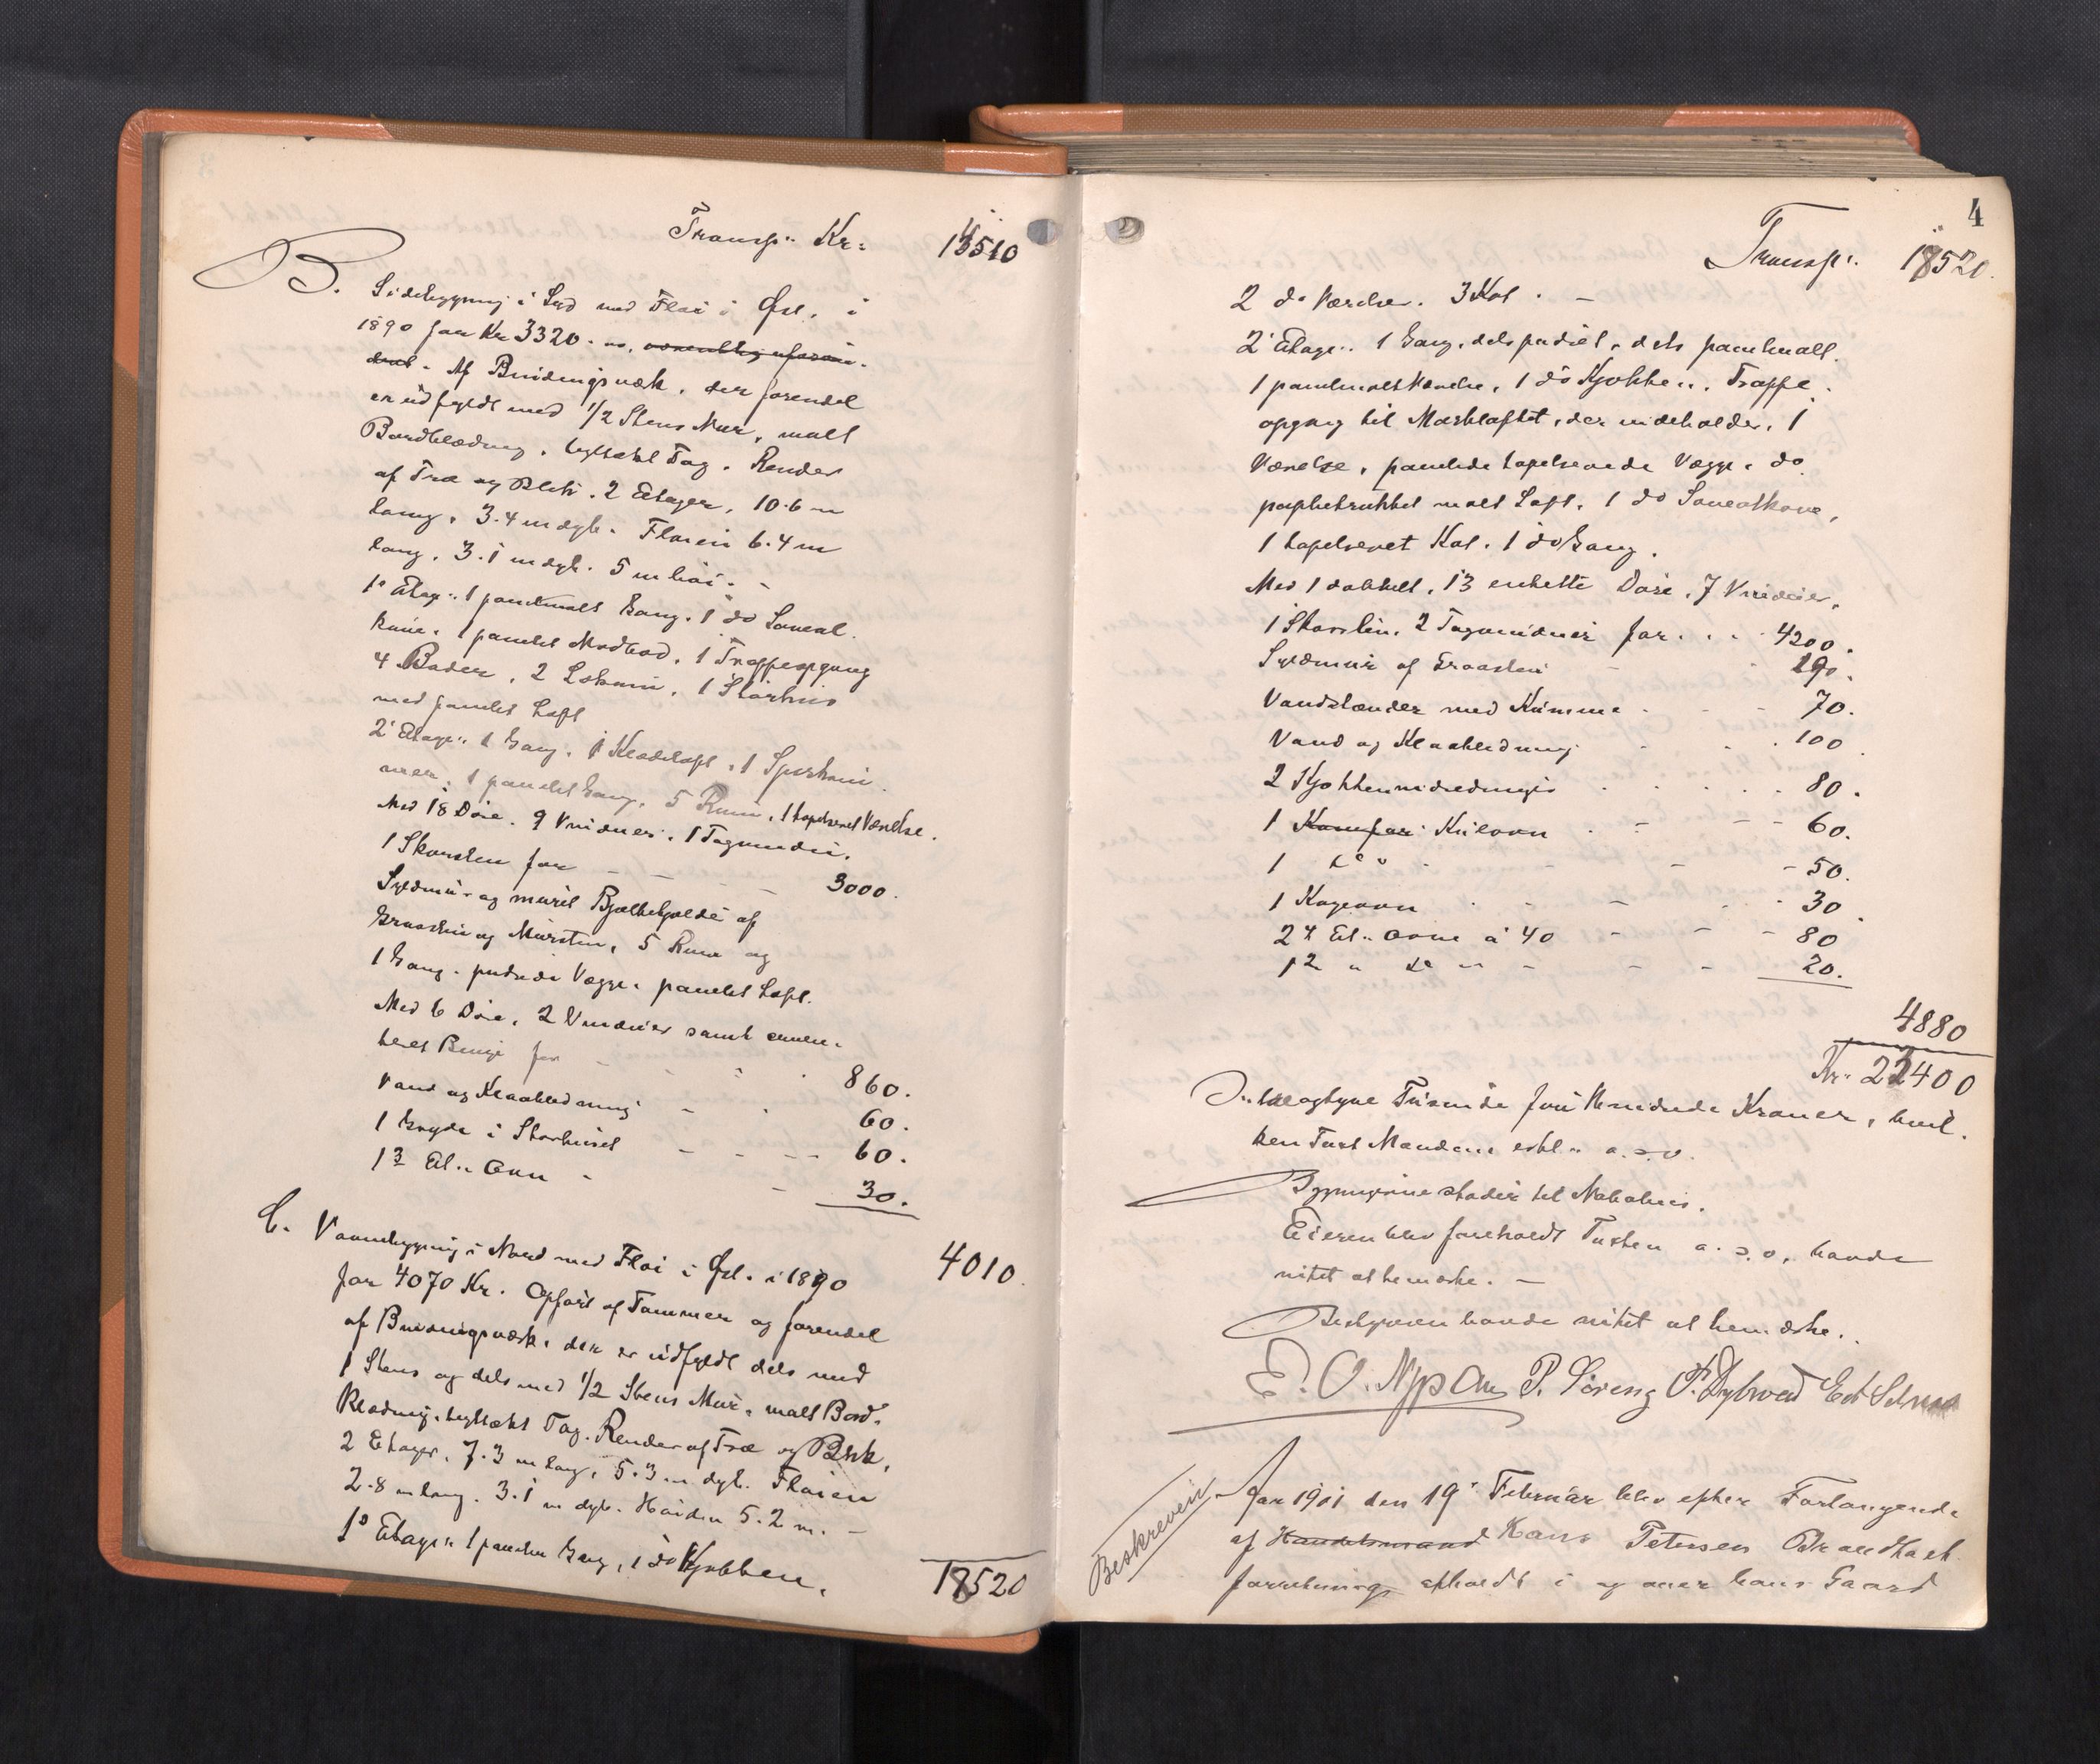 Transp.: Kr: 13510
B. Sidebygning i Syd med Fløi i Øst. i
1890 for Kr 3320.
Af Bindingsværk, der forendel
er udfyldt med 1/2 Stens Mur, malt
Bordklædning, teglhængt Tag. Render
af Træ og Blik. 2 Etager, 10.6 m
lang, 3.4 m dyb. Fløien 6.4 m
lang, 3.1 m dyb. 5 m høi. -
1ste Etage: 1 panelmalt Gang. 1 do
1 panelet Madbod, 1 Trappeopgang
4 Boder, 2 Lokumer, 1 Størhus
med panelet Loft
2 Etage: 1 Gang, 1 Klædeloft, 1 Spiskam
mer, 1 panelet Gang, 5 Rum, 1 tapetseret Værelse.
Med 18 Døre. 9 Vinduer. 1 Tagvindu.
1 Skorsten for - - - 3000.
Syldmur og muret Bjælkekjelder af
Graasten og Mursten, 5 Rum og
1 Gang. pudsede Vægge. panelet Loft.
Med 6 Døre, 2 Vinduer samt cemen-
teret Binge for - - - 860.
Vand og Kloakledning - - 60.
1 Gryde i Størhuset - - - 60.
1 3 Et.: Ovn - - 30.
4010.
C. Vaanebygning i Nord med Fløi i Øst. i 1890
for 4070 Kr. Opført af Tømmer og forendel
af Bindingsværk, der er udfyldt dels med
1 Stens og dels med 1/2 Stens Mur, malt Bord-
klædning, teglhængt Tag. Render af Træ og Blik,
2 Etager. 7.3 m lang, 5.3 m dyb. Fløien
2.8 m lang. 3.1 m dyb. Høiden 5.2 m. -
1ste Etage: 1 panelet Gang, 1 do Kjøkken,
18520
4
Transp: 18520.
2 do Værelser. 3 Kot. -
2 Etage: 1 Gang, dels pudset, dels panelmalt.
1 panelmalt Værelse, 1 do Kjøkken, Trappe-
opgang til Mørkloftet, der indeholder, 1
Værelse, panelede tapetserede Vægge, do
papbetrukket malt Loft. 1 do
1 tapetseret Kot. 1 do Gang.
Med 1 dobbelt, 13 enkelte Døre, 7 Vinduer,
1 Skorsten, 2 Tagvinduer for . . . 4200.
Syldmur af Graasten - 190.
Vandstænder med Kumme - - 70.
Vand og Kloakledning - - 100.
2 Kjøkkenindredninger . . . . 80.
1 Komfur Kulovn . - - - 60.
1 do - - - - 50.
1 Kogeovn . . - - - 30.
2 4 Et.: Ovne à 40 - - - 80
1 2 " do " - - - 20.
4880
Kr. 22400
To og tyve Tusinde fire Hundrede Kroner, hvil-
ken Taxt Mændene erkl. a. s. v.
Bygningerne støder til Nabohus.
Eieren blev foreholdt Taxten a. s. v., havde
intet at bemærke. -
Bestyreren havde intet at bemærke.
E. O. Nypan P. Søreng P. Dybvad Edv
Beskreven
Aar 1901 den 19de Februar blev efter Forlangende
af Handelsmand Hans Petersen Brandtaxt-
forretning afholdt i og over hans Gaard